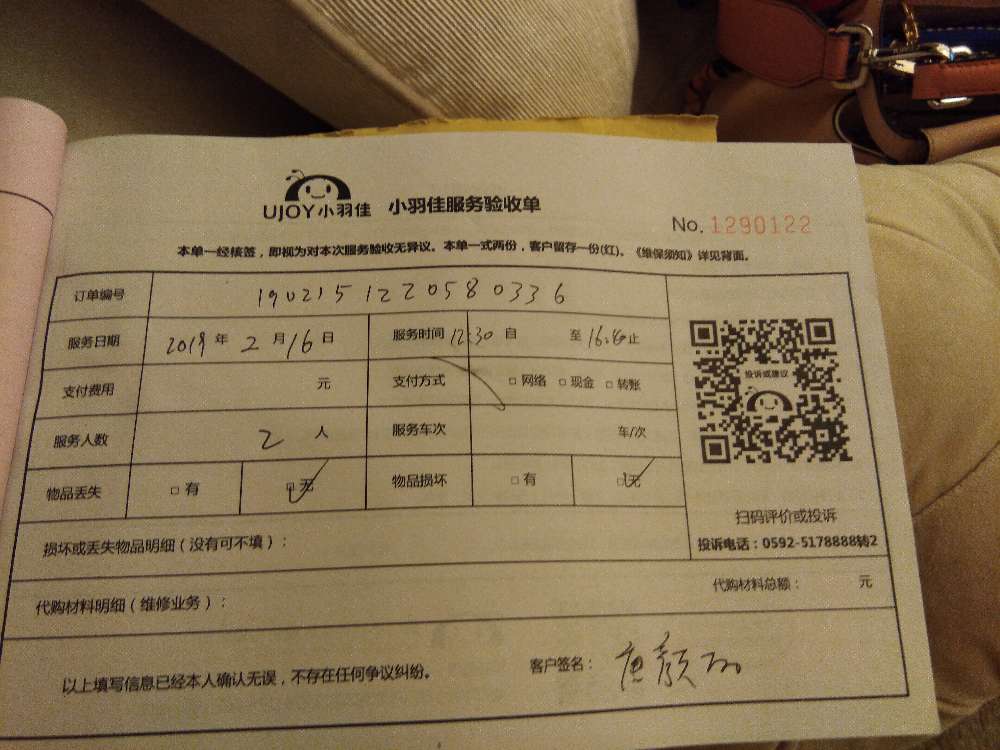 UJOY小羽佳 小羽佳服务验收单
No. 1290122
本单一经核签，即视为对本次服务验收无异议。本单一式两份，客户留存一份(红)。《维保须知》详见背面。
订单编号 190215122058 0336
服务日期 2019 年 2 月 16 日 服务时间 12:30 自 至 16:40 止
投诉或建议
支付费用 元 支付方式 □ 网络 □ 现金 □ 转账
服务人数 2 人 服务车次 车/次
物品丢失 □ 有 □ 无 物品损坏 □ 有 □ 无
扫码评价或投诉
投诉电话：0592-5178888转2
损坏或丢失物品明细（没有可不填）：
代购材料明细（维修业务）： 代购材料总额： 元
以上填写信息已经本人确认无误，不存在任何争议纠纷。 客户签名：